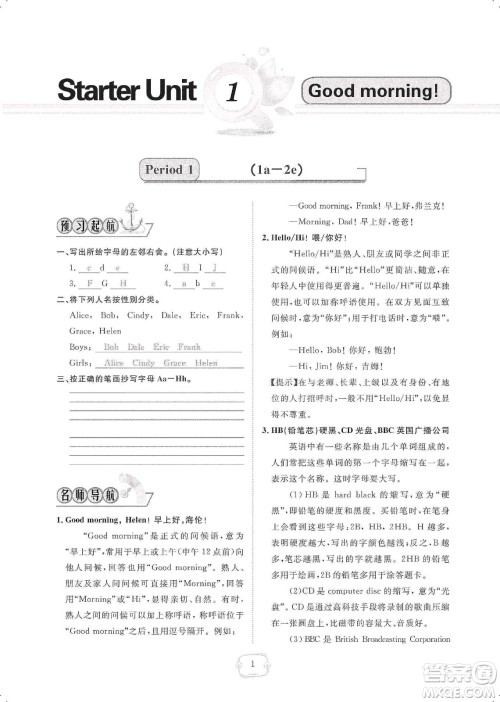 Starter Unit 1 Good morning!
Period 1 (1a—2e)
预习起航
一、写出所给字母的左邻右舍。(注意大小写)
1. c d e 2. H I J
3. F G H 4. a b c
二、将下列人名按性别分类。
Alice, Bob, Cindy, Dale, Eric, Frank,
Grace, Helen
Boys: Bob Dale Eric Frank
Girls: Alice Cindy Grace Helen
三、按正确的笔画抄写字母 Aa—Hh。
名师导航
1. Good morning, Helen! 早上好,海伦!
“Good morning”是正式的问候语,意为
“早上好”,常用于早上或上午(中午12点前)向
他人问候,应答语仍用“Good morning”。熟人、朋
友及家人间问候可直接用“Morning”。
“Morning”或“Hi”,但语气较随便。有时,
熟人之间的问候可以加上称呼语,称呼语位于
“Good morning”之后,且用逗号隔开。例如:
—Good morning, Frank! 早上好,弗兰克!
—Morning, Dad! 早上好,爸爸!
2. Hello/Hi! 喂/你好!
“Hello/Hi”是熟人、朋友或同学之间非正
式的问候语。“Hi”比“Hello”更简洁、随意,在
年轻人中使用得更多。双方见面互致问候
时,“Hello/Hi”可以加称呼语或直接使用,
意为“你好”;用于打电话时,意为“喂”。
例如:
—Hello/Hi, Bob! 你好,鲍勃!
—Hi, Jim! 你好,吉姆!
【提示】在与老师、长辈、上级或陌生
人打招呼时,一般不用“Hello/Hi”,以免使对方觉
得不尊重。
3. HB(铅笔芯)硬黑、CD 光盘、BBC 英国广播公司
英语中有一些名称是由几个单词组成的,
人们常用其中每个单词的首字母缩写在一起
来表示,这时字母要大写。
(1)HB 是 hard black 的缩写,意为“硬
黑”,主要用于表示铅笔芯的类型。H 越多,
写出的字颜色越浅,笔芯越硬;B 越多,写出
的字越黑,笔芯越软。HB 的铅笔软硬适中,
多用于绘图。2B 的铅笔多用于涂答题卡。
(2)CD 是 computer disc 的缩写,意为“光
盘”,主要指通过高科技手段将录制的歌曲压缩在一
起,比磁带的容量大、效果好、寿命长。
(3)BBC 是 British Broadcasting Corporation
1